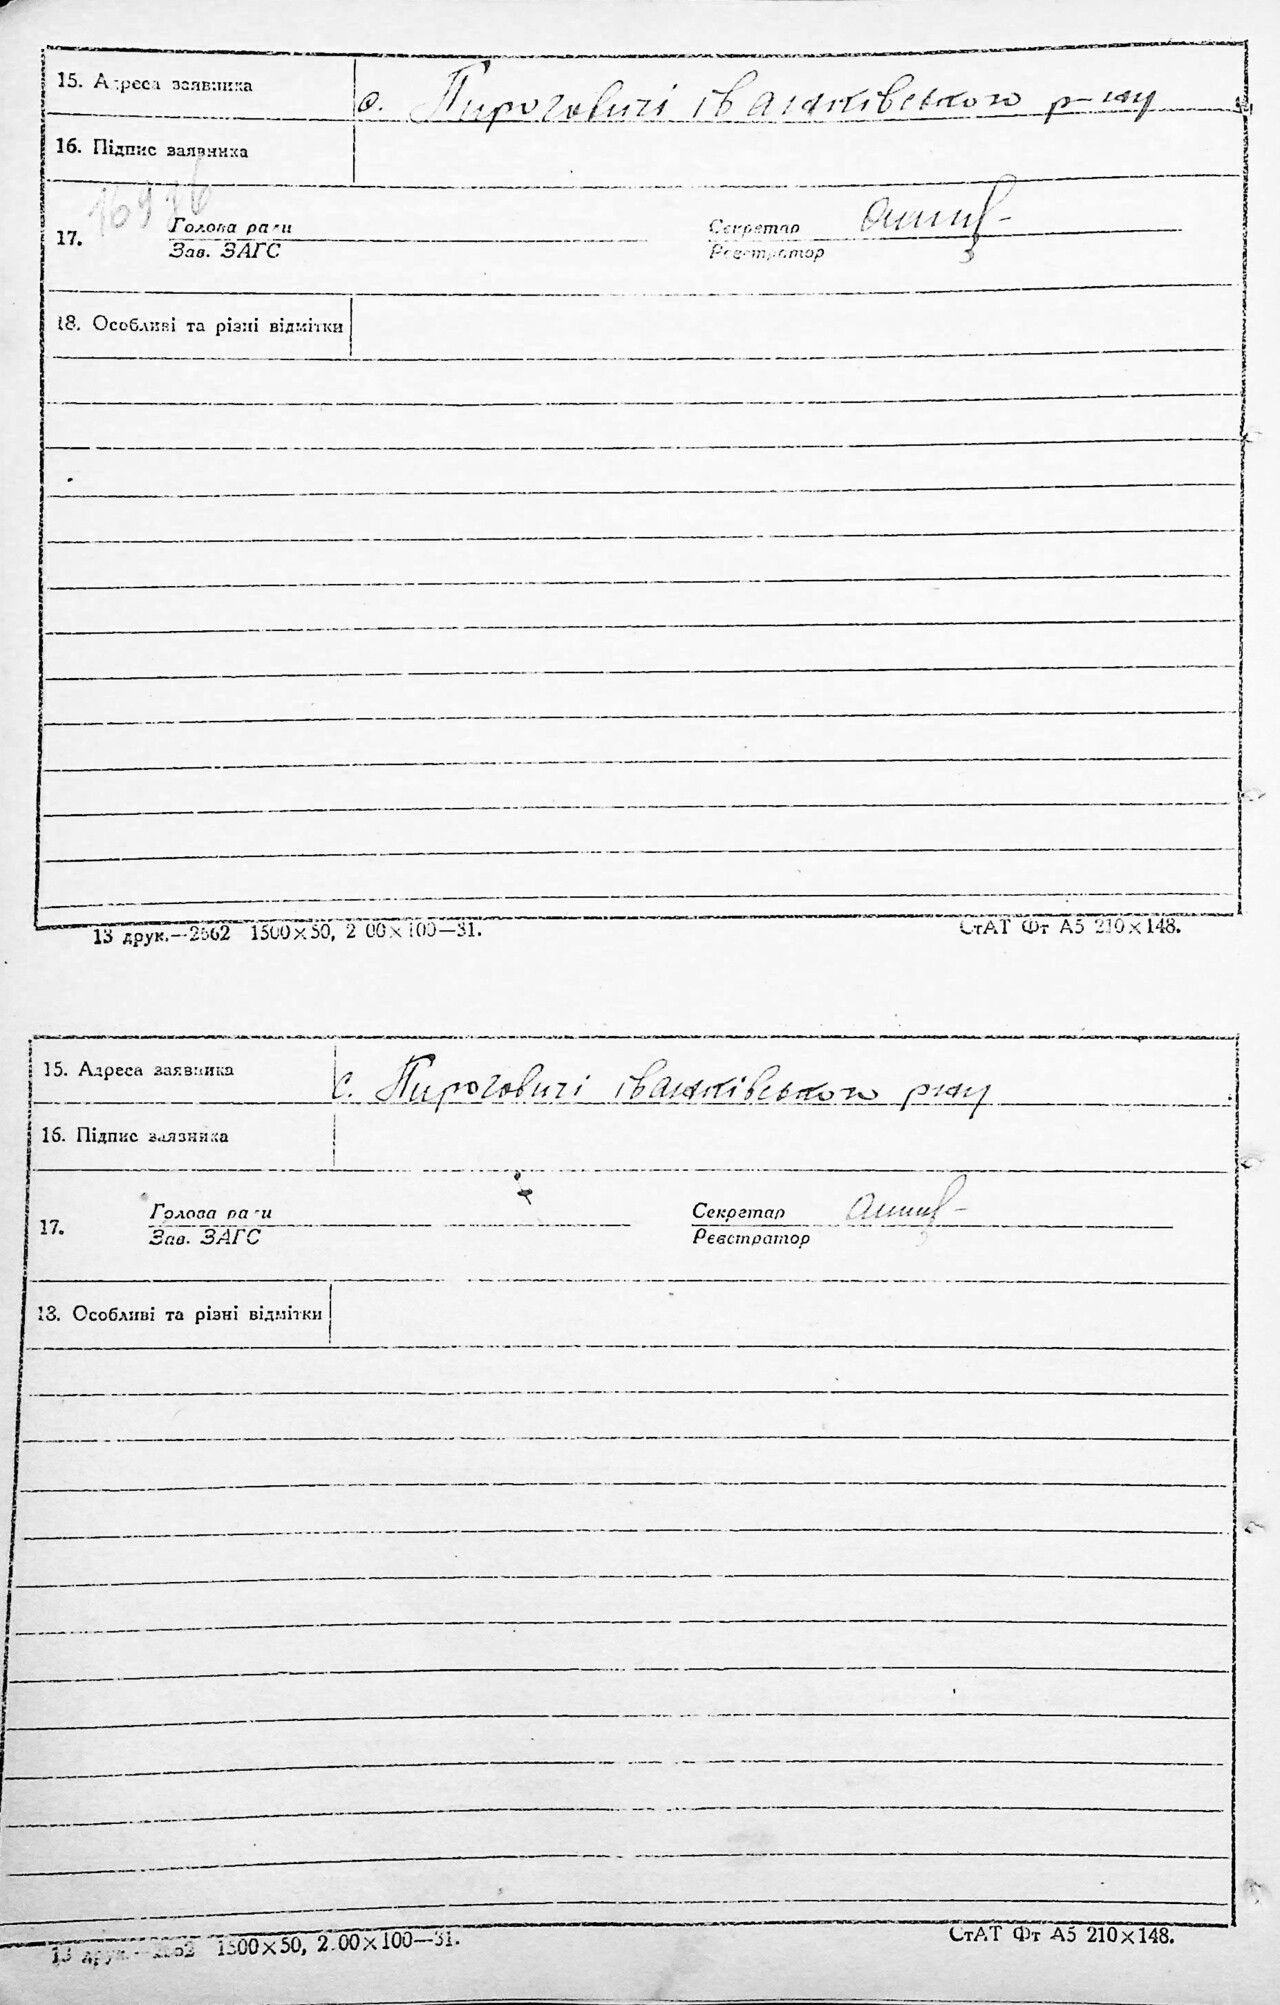 15. Адреса заявника с. Пироговичі іванківського р-ну
16. Підпис заявника
16916
17. Голова ради Секретар
Зав. ЗАГС Реєстратор
18. Особливі та різні відмітки
13 друк.—2562 1500×50, 2 00×100—31. СтАТ Фт А5 210×148.
15. Адреса заявника с. Пироговичі іванківського р-ну
16. Підпис заявника
17. Голова ради Секретар
Зав. ЗАГС Реєстратор
18. Особливі та різні відмітки
13 друк.—2562 1500×50, 2.00×100—31. СтАТ Фт А5 210×148.